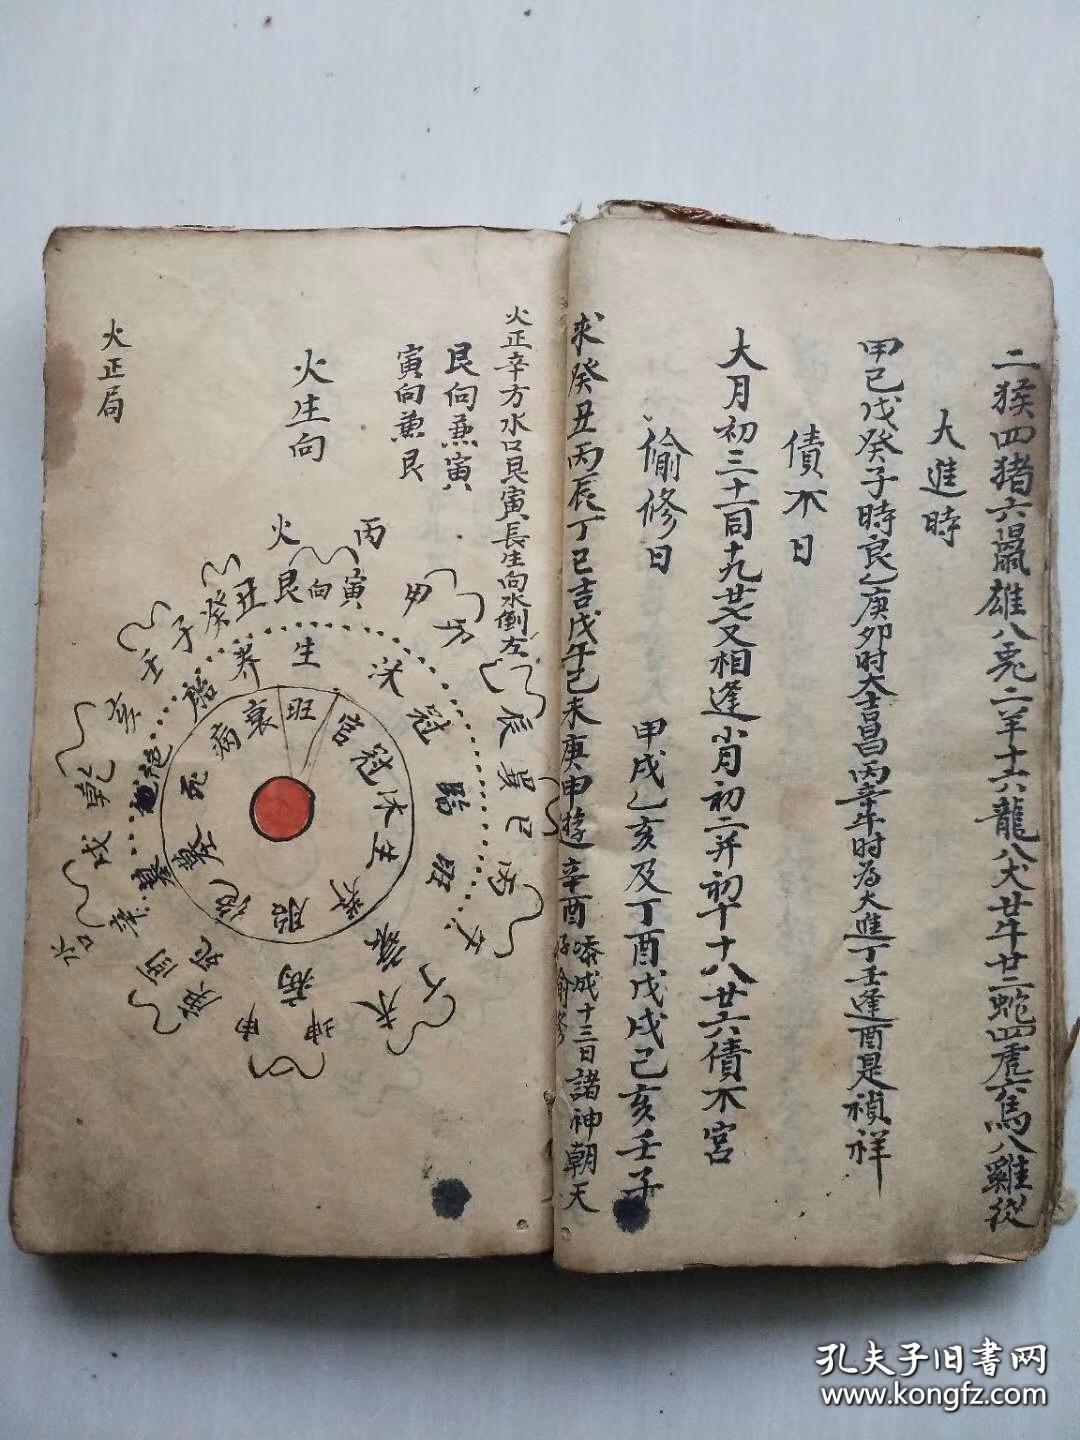 二猴四猪六鼠雄八兎二羊十六龍八犬廿牛廿二蛇四虎六馬八雞從
大進時
甲己戊癸子時良乙庚卯时大吉昌丙辛午时為大進丁壬逢酉是禎祥
債不日
大月初三十一同十九廿七又相逢小月初二并初十十八廿六債不宮
偷修日
甲戌乙亥及丁酉戊戌己亥壬子
求癸丑丙辰丁巳吉戊午己未庚申逰辛酉
添成十三日諸神朝天
火正辛方水口艮寅長生向水倒左
艮向兼寅
寅向兼艮
火生向
火正局
火
丙
丑艮向寅
甲
癸
子
壬
辛
乾
戌
辰
巽
巳
丙
丁
未
坤
申
養
生
沐
冠
臨
旺
衰
病
死
墓
絕
胎
旺
衰
病
死
墓
絕
胎
養
生
沐
冠
臨
孔夫子旧書网
www.kongfz.com